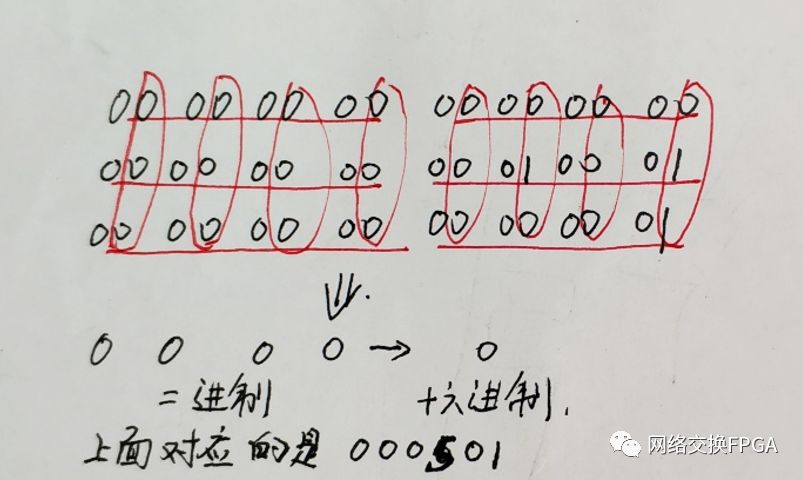 00 00 00 00 00 00 00 00
00 00 00 00 00 01 00 01
00 00 00 00 00 00 00 01
0 0 0 0 → 0
二进制 十六进制.
上面对应的是 000501
网络交换FPGA